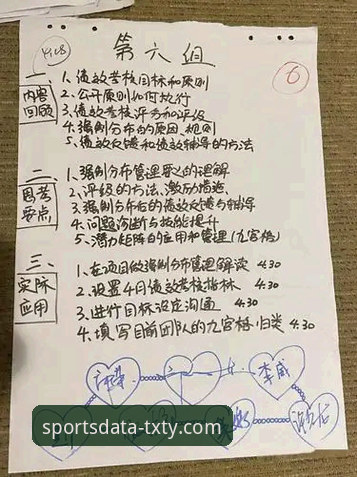 第六组
6
一、内容回顾
1、绩效考核目标和原则
2、公开原则如何执行
3、绩效考核评方和评级
4、强制分布的原因、规则
5、绩效反馈和绩效辅导的方法
二、思考要点
1、强制分布管理要义的理解
2、评级的方法、激励措施、
3、强制分布后的绩效反馈与辅导
4、问题诊断与技能提升
5、潜力矩阵的应用和管理(九宫格)
三、实际应用
1、在项目做强制分布管理解读 4.30
2、设置4月绩效考核指标 4.30
3、进行目标设定沟通 4.30
4、填写目前团队的九宫格归类 4.30
李威
sportsdata-txty.com